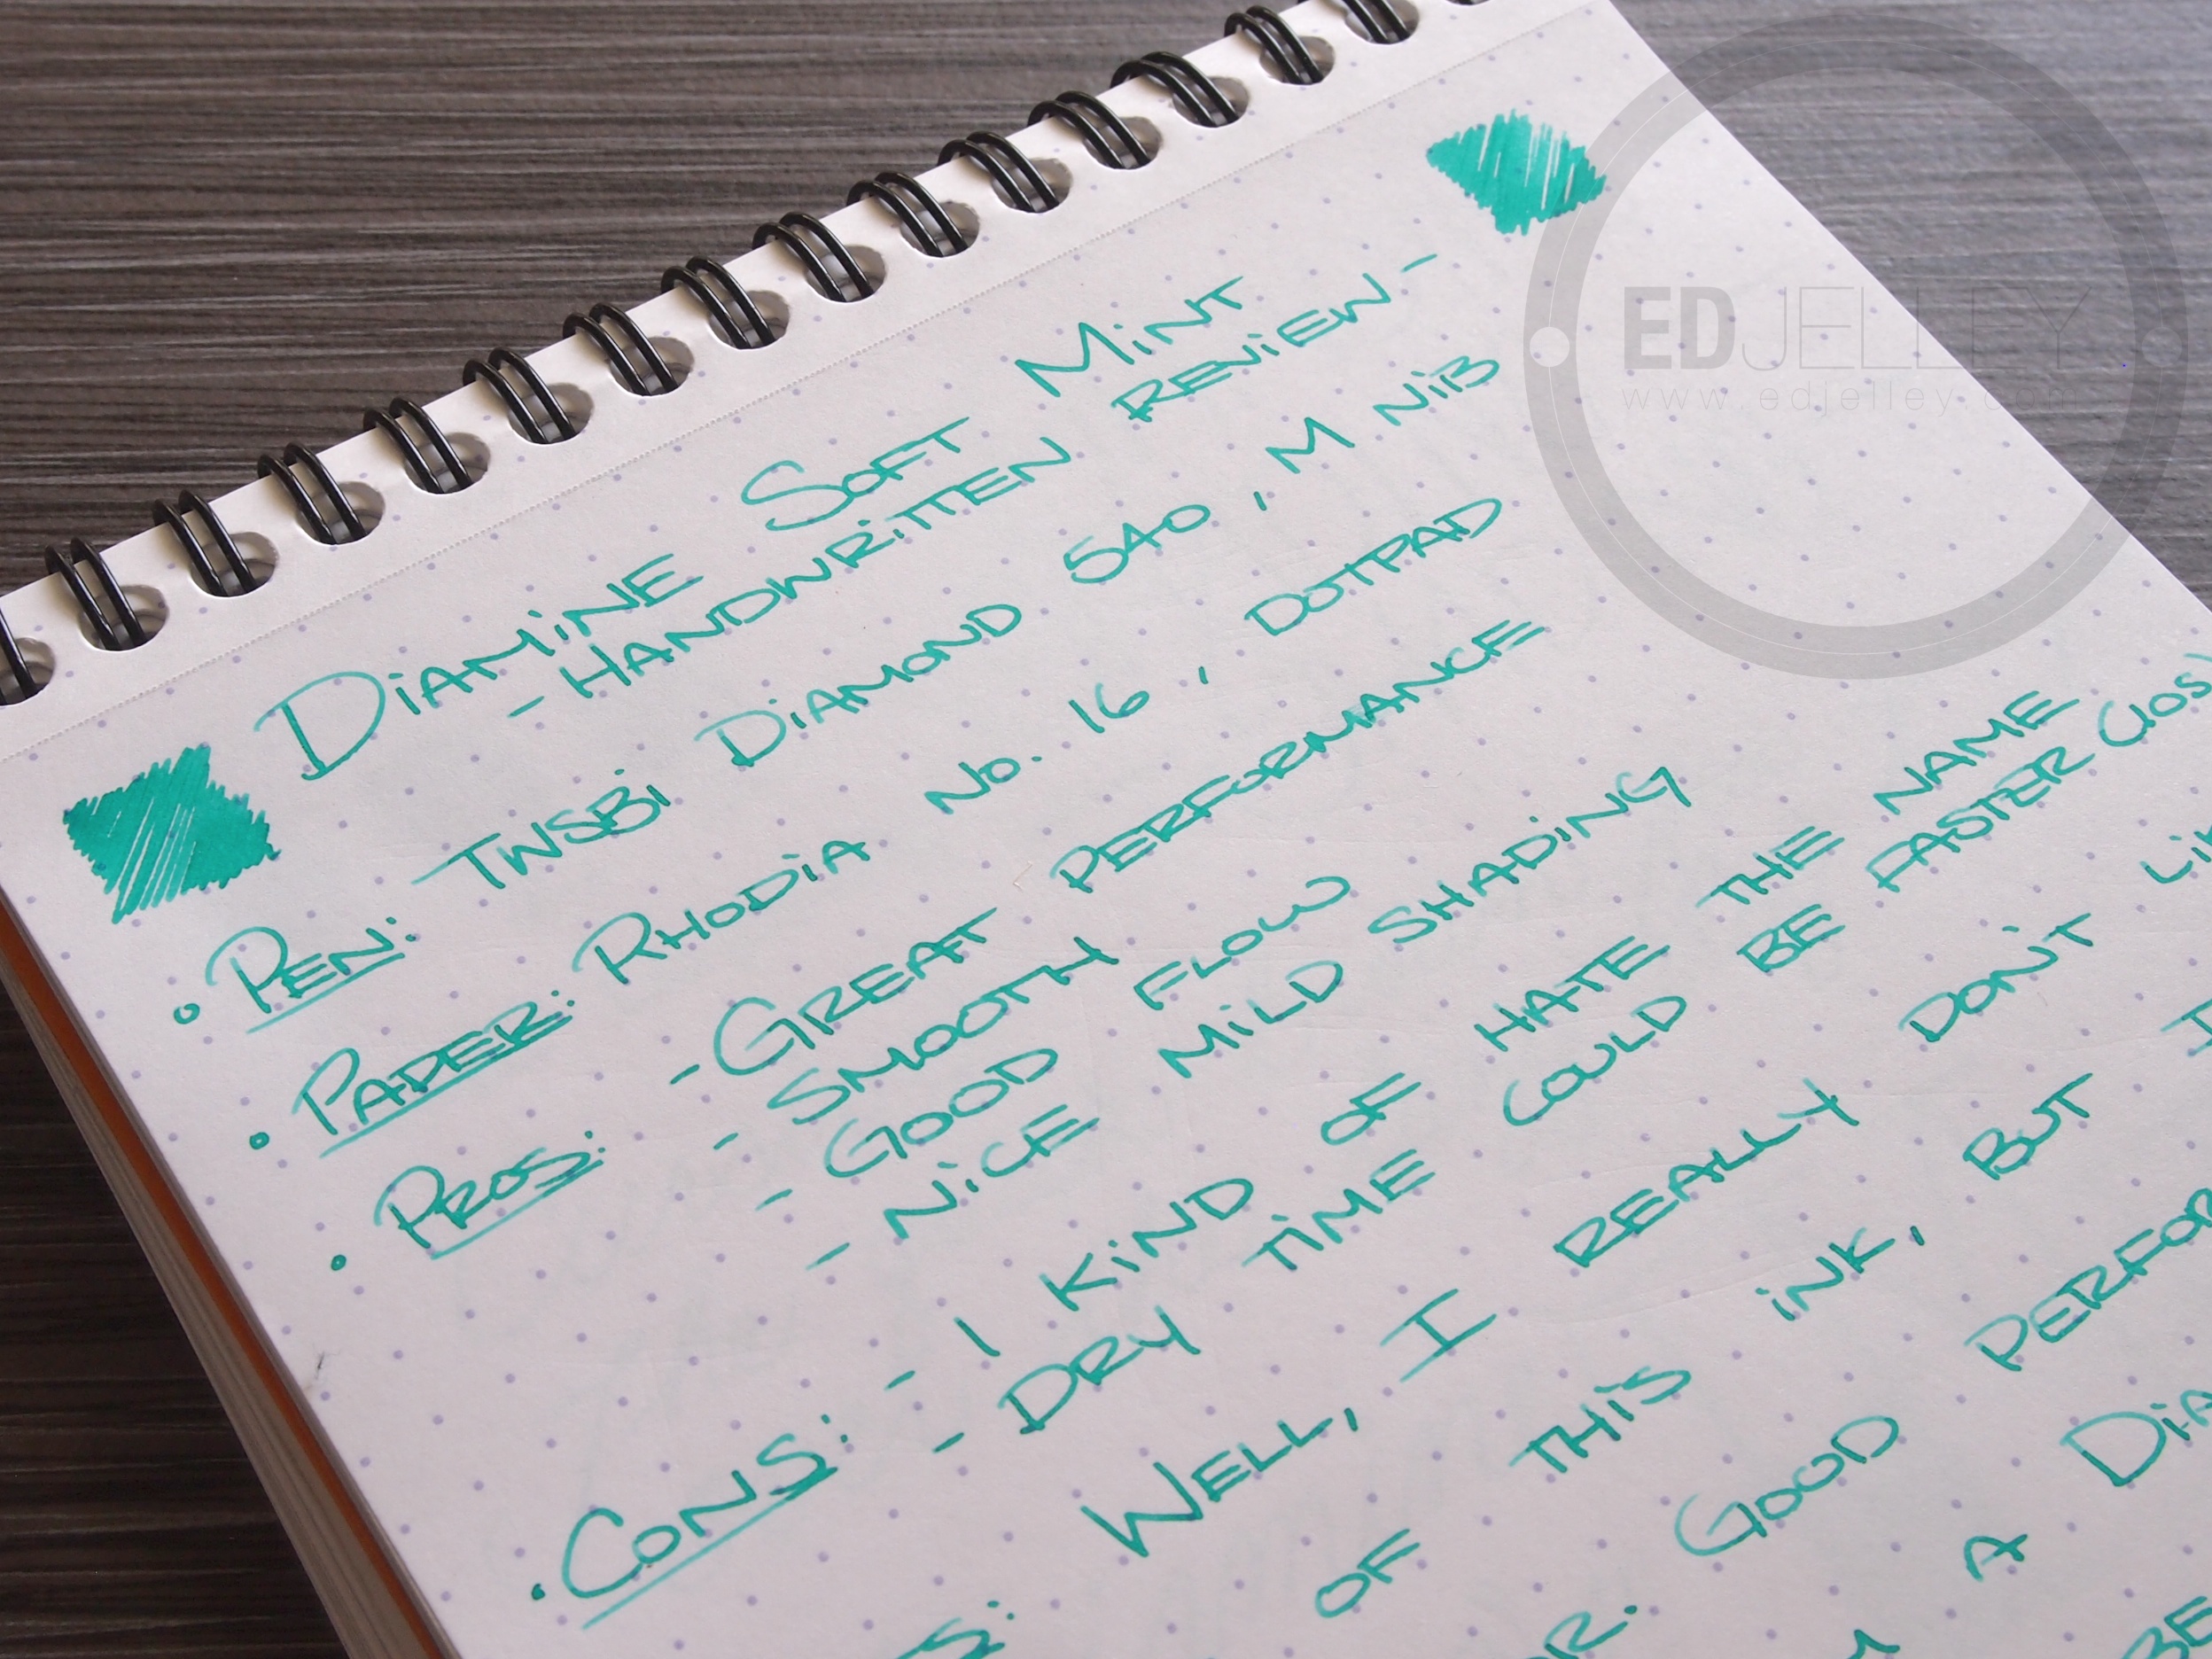 DIAMINE SOFT MINT
- HANDWRITTEN REVIEW -
• PEN: TWSBI DIAMOND 540, M NIB
• PAPER: RHODIA No. 16, DOTPAD
• PROS: - GREAT PERFORMANCE
- SMOOTH FLOW
- GOOD MILD SHADING
- NICE
• CONS: - I KIND OF HATE THE NAME
- DRY TIME COULD BE FASTER
WELL, I REALLY DON'T
OF THIS INK, BUT I
GOOD
A
EDJELLEY
www.edjelley.com